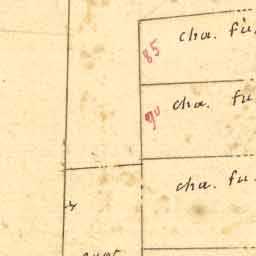 85 cha. fu.
90 cha. fu.
cha. fu.